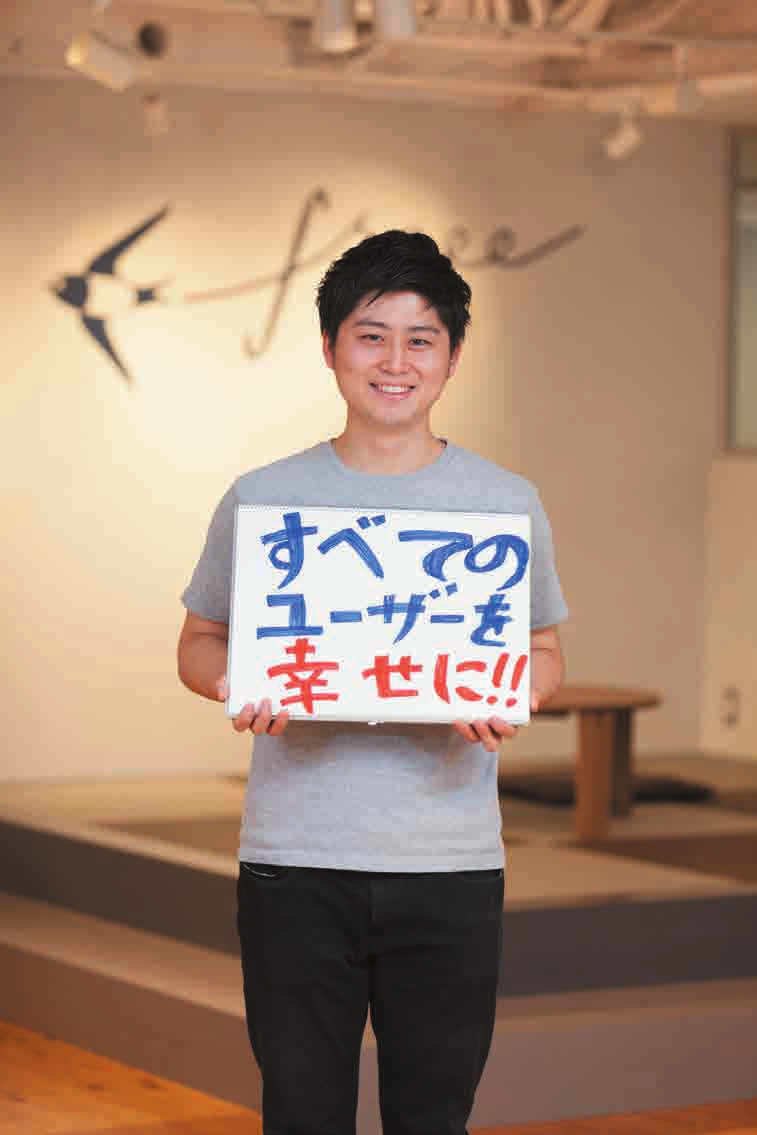 freee
すべての
ユーザーを
幸せに!!